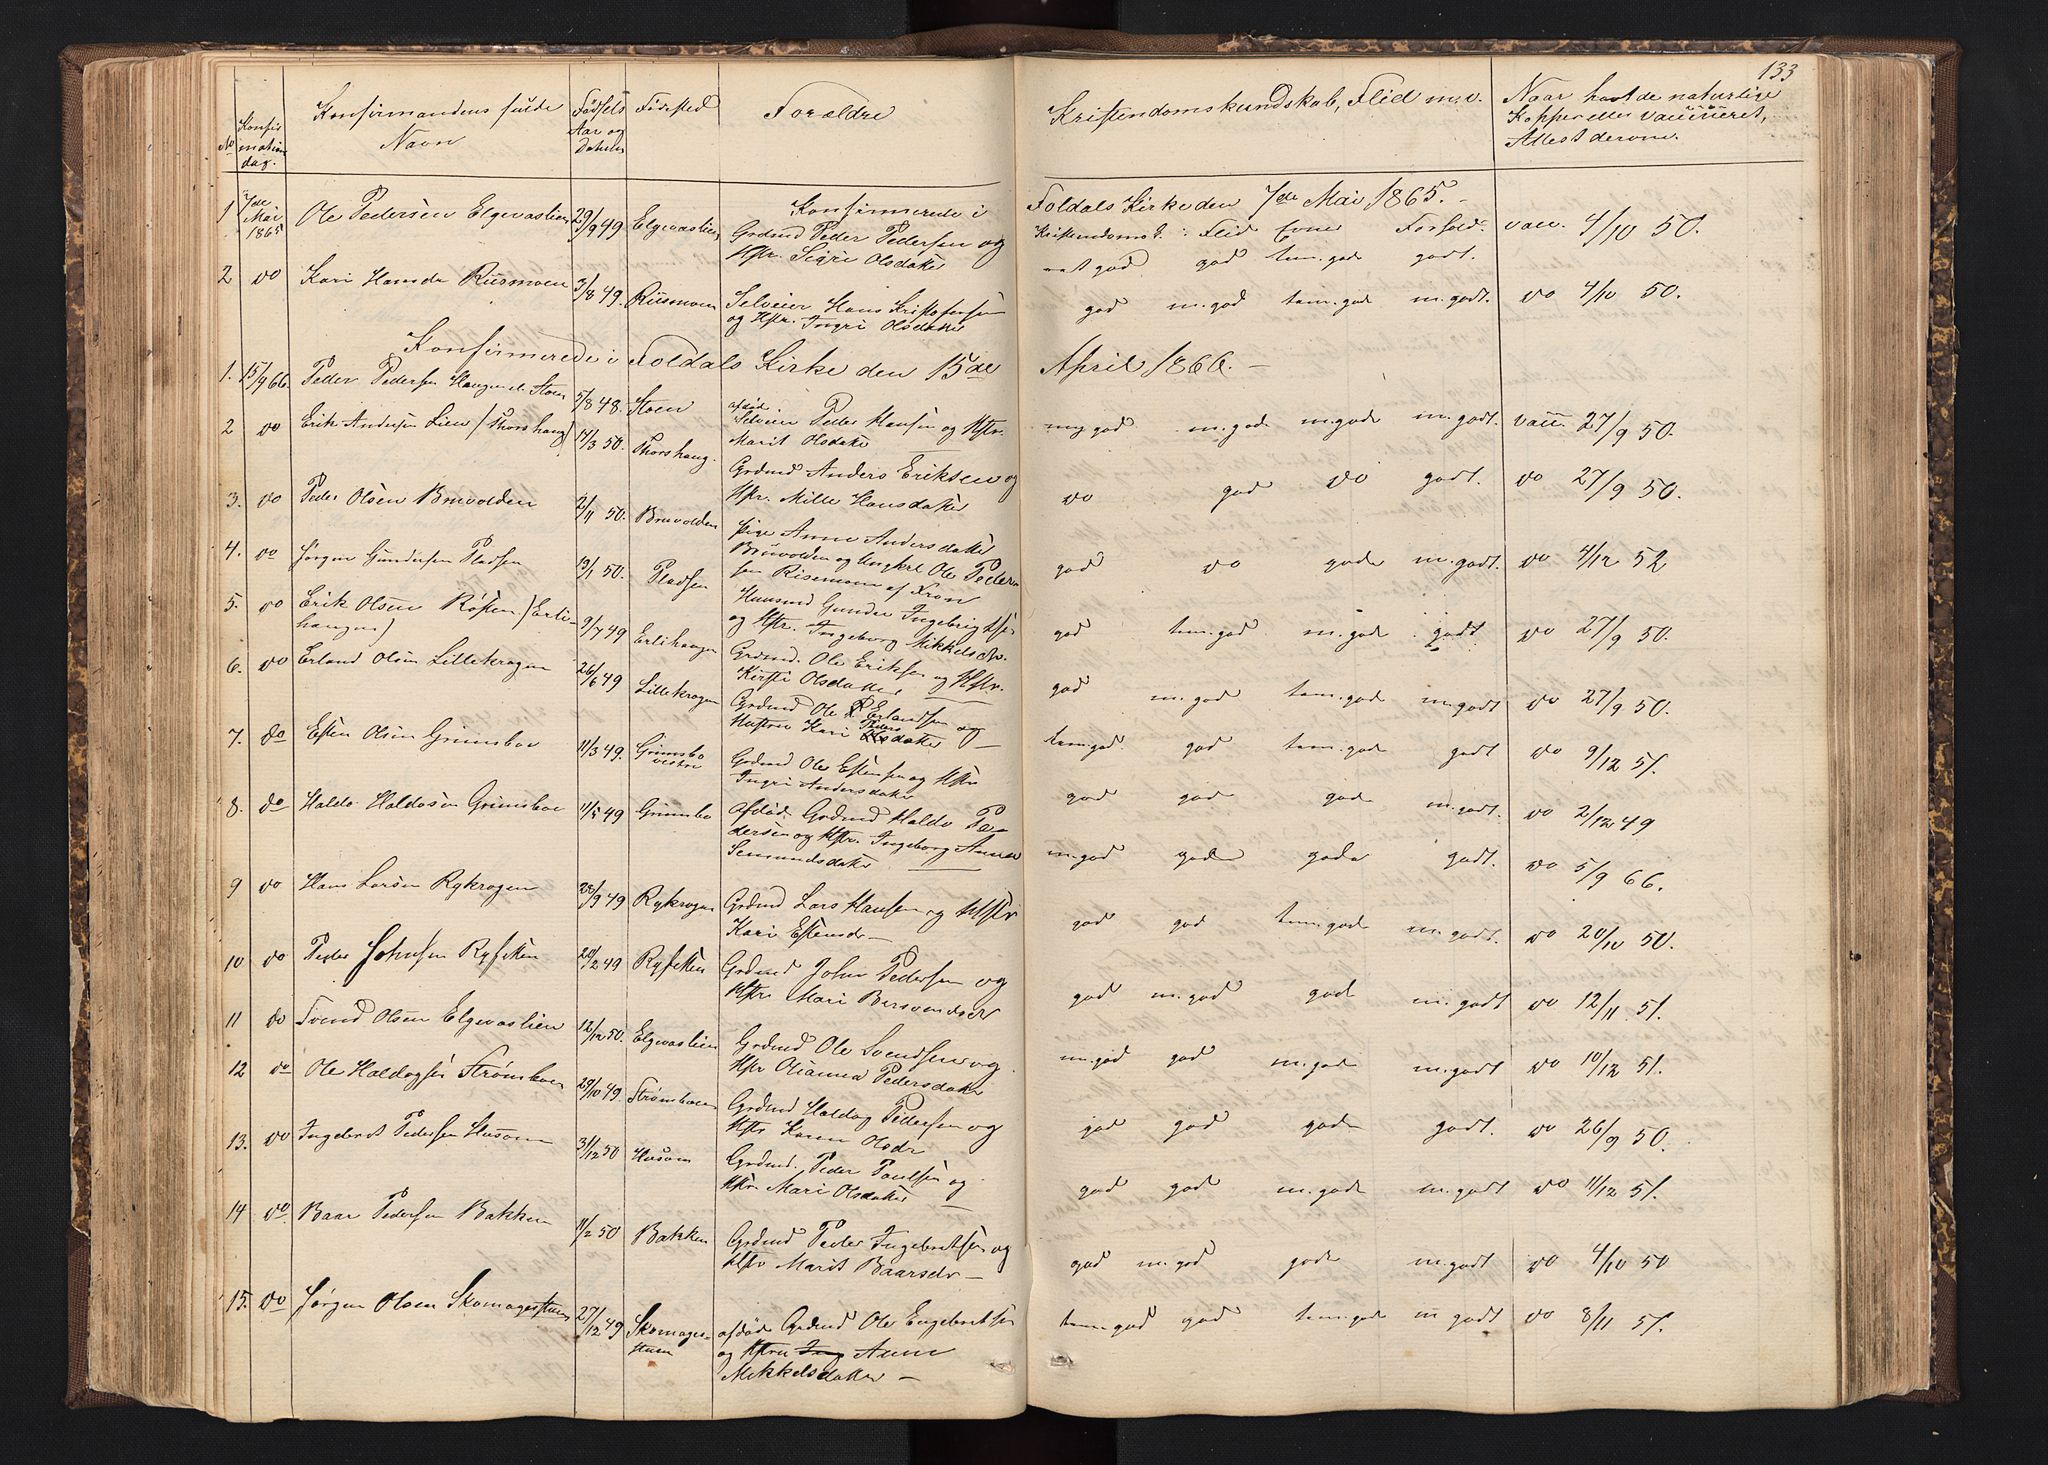 133
No
Konfir
mations
dag.
Konfirmandens fulde
Navn
Fødsels
Aar og
Datum
Fødested
Forældre
Kristendomskundskab, Flid m.v.
Naar havt de naturlige
Kopper eller vaccineret,
Attest derom.
Konfirmerede i Foldals Kirke den 7de Mai 1865.
Kristendomsk. Flid Evner Forhold.
1 7de Mai 1865 Ole Pedersen Elgevaslien 29/9 49 Elgevaslien Grdmd Peder Pedersen og
Hstr. Sigri Olsdatter
god tem.gode godt. vacc. 4/10 50.
2 do Kari Hansdr Riismoen 3/8 49. Riismoen Selveier Hans Kristofersen
og Hstr. Ingri Olsdatter
god m.god tem.gode m.godt. do 4/10 50.
Konfirmerede i Foldals Kirke den 15de April 1866.
1. 15/4 66 Peder Pedersen Haugen el. Stoen 5/8 48. Stoen afdød
Selveier Peder Hansen og Hstr.
Marit Olsdatter
meg god m.gode m.gode m.godt. vacc. 27/9 50.
2 do Erik Andersen Lien (Thorshaug) 14/3 50. Thorshaug. Grdmd Anders Eriksen og
Hstr. Mille Hansdatter
do god do godt. do 27/9 50.
3. do Peder Olsen Bruvolden 2/11 50. Bruvolden Pige Anne Andersdatter
Bruvolden og Ungkrl Ole Peder
sen Risemoen af Fron
god do gode m.godt. do 4/12 52
4. do Jørgen Gundersen Pladsen 19/1 50. Pladsen Huusmd Gunder Ingebrigtsen
og Hstr. Ingeborg Mikkelsdr.
god tem.god m.gode godt do 27/9 50.
5. do Erik Olsen Røsten (Erli-
haugen) 9/7 49 Erlihaugen Grdmd. Ole Eriksen og Hstr.
Kirsti Olsdatter
god m.god tem.gode m.godt do 27/9 50.
6. do Erland Olsen Lillekrogen 26/6 49 Lillekrogen Grdmd Ole Erlandsen og
Hustru Kari Pedersdatter
tem.god. god tem.gode godt do 9/12 51.
7. do Esten Olsen Grimsboe 11/3 49. Grimsbo
vestre Grdmd Ole Estensen og Hstr
Ingri Andersdatter
god gode gode m.godt. do 2/12 49
8. do Haldo Haldosen Grimsboe 11/5 49 Grimsbo Afdøde Grdmd Haldo Pe-
dersen og Hstr. Ingeborg Anne
Semundsdatter
m.god gode gode godt. do 5/9 66.
9 do Hans Larsen Rykrogen 28/9 49 Rykrogen Grdmd Lars Hansen og Hstr
Kari Estensdr
god god tem.gode m.godt. do 20/10 50.
10 do Peder Johnsen Ryfetten 20/2 49 Ryfetten Grdmd John Pedersen og
Hstr Mari Bersvendsdr
god m.god gode m.godt do 12/11 51.
11 do Svend Olsen Elgevaslien 12/12 50. Elgevaslien Grdmd Ole Svendsen og
Hstr Olianna Pedersdatter
m.god god m.gode m.godt do 10/12 51.
12 do Ole Haldogsen Strømboen 29/10 49. Strømboen Grdmd Haldog Pedersen og
Hstr Karen Olsdr
god god gode godt. do 26/9 50.
13. do Ingebret Pedersen Husom 31/12 50 Husom Grdmd. Peder Poulsen og
Hstr. Mari Olsdatter
god god m.gode m.godt do 11/12 51.
14 do. Baar Pedersen Bakken 11/2 50 Bakken Grdmd Peder Ingebretsen og
Hstr Marit Baarsdr
god m.god gode m.godt do 4/10 50
15. do Jørgen Olsen Skomagerstuen 27/12 49 Skomager-
stuen afdøde Grdmd Ole Engebretsen
og Hstru Ing Anne
Mikkelsdatter
tem.god god tem.gode m godt do 8/11 51.